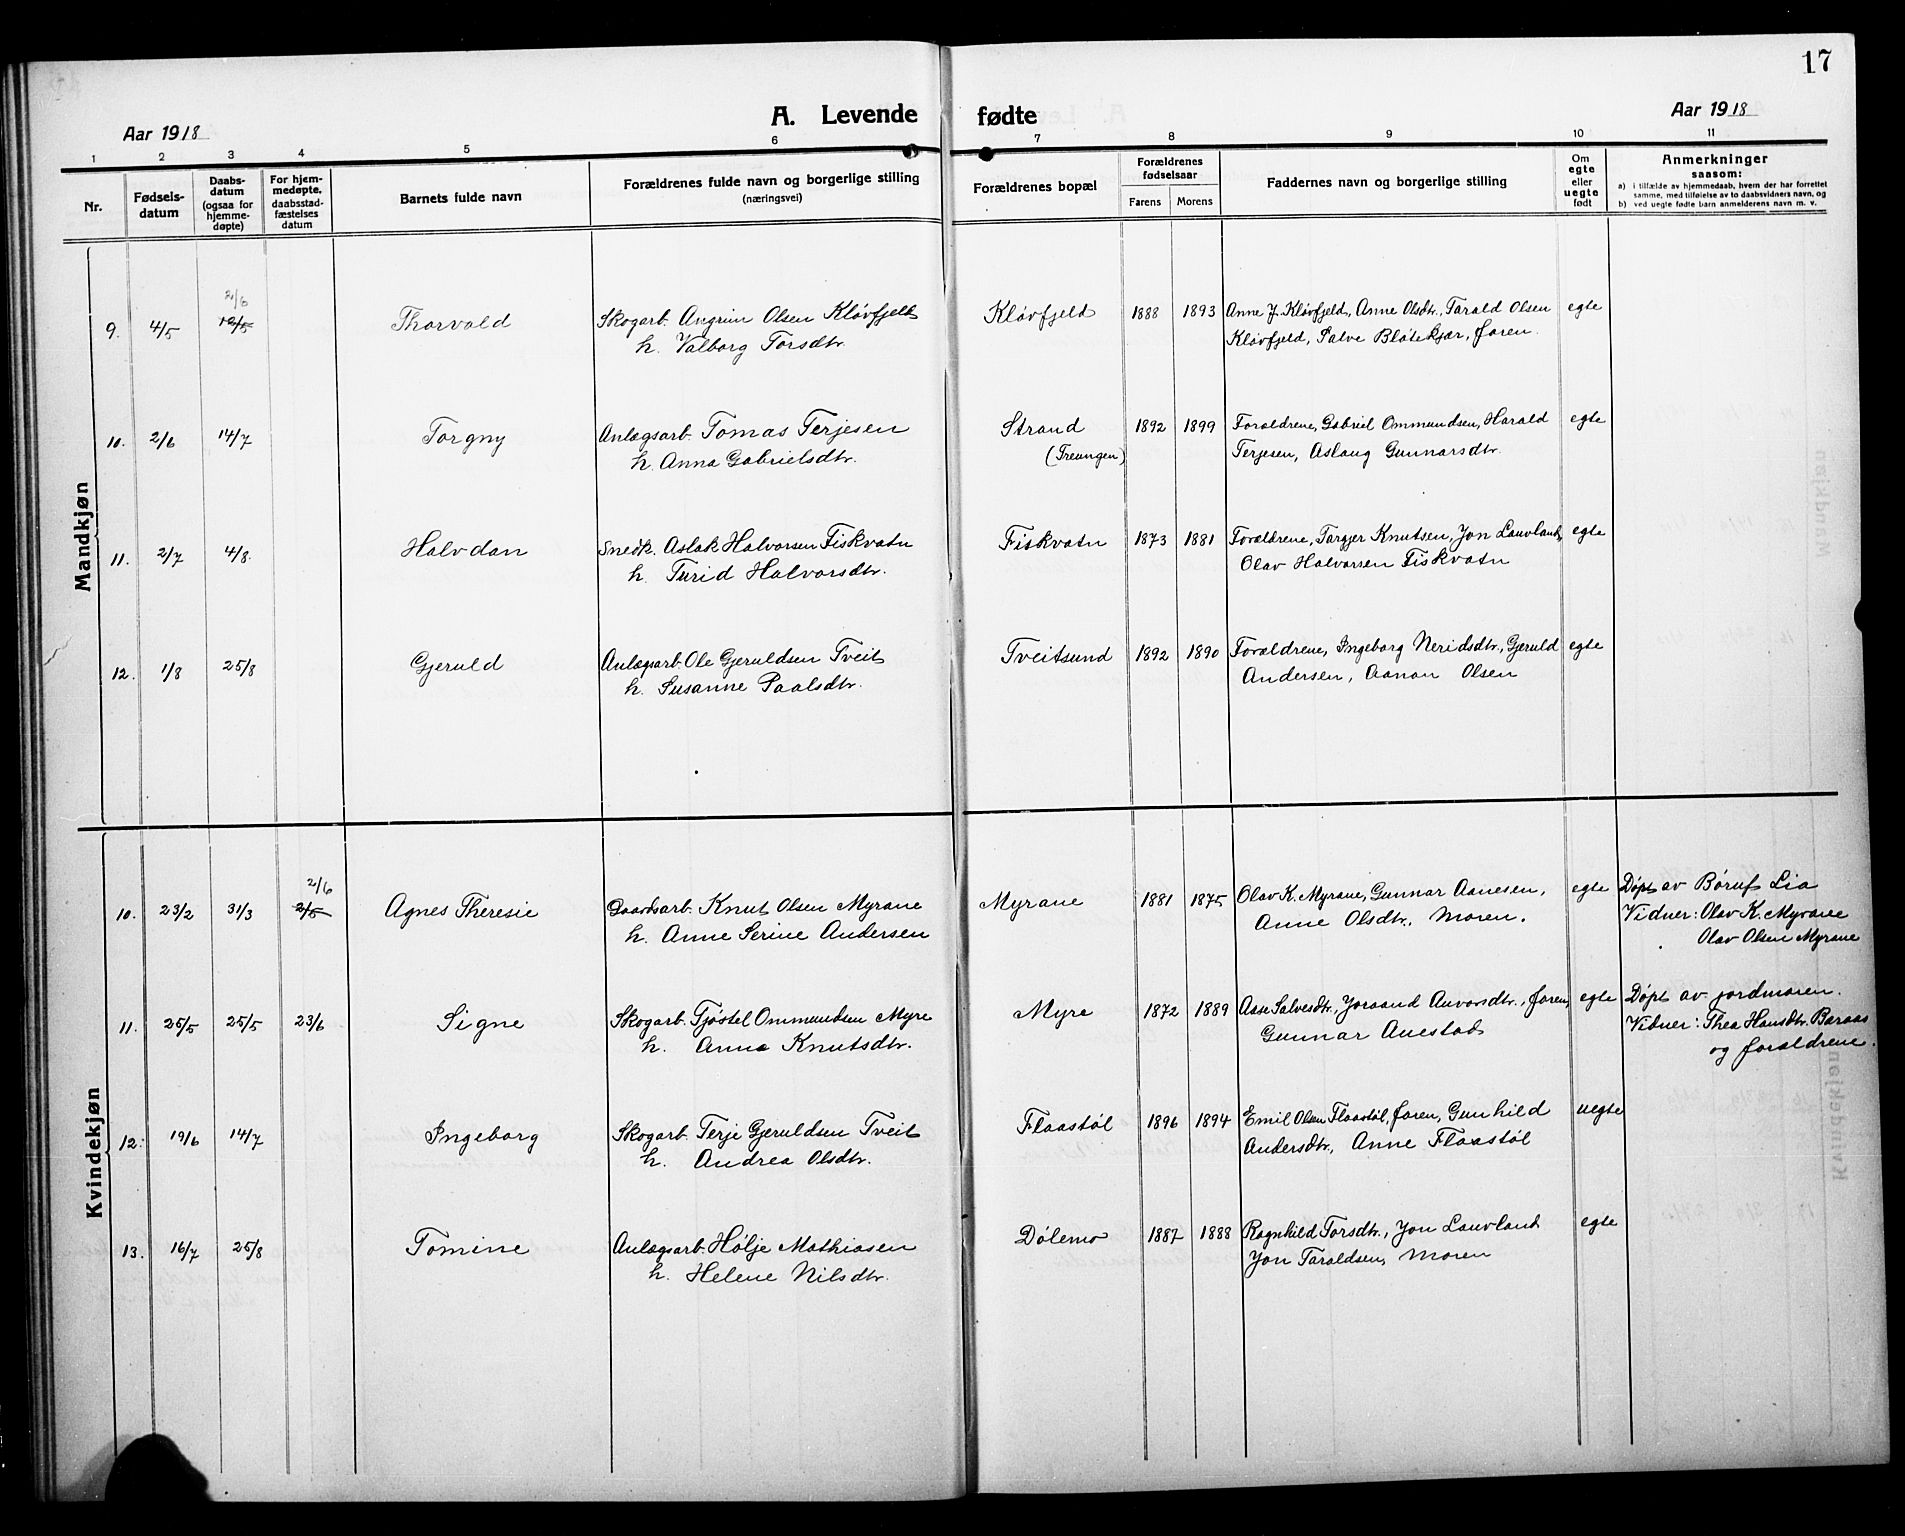 17
A. Levende fødte
Aar 1918
Aar 1918
1 2 3 4 5 6 7 8 9 10 11
Nr.
Fødsels-
datum
Daabs-
datum
(ogsaa for
hjemme-
døpte)
For hjem-
medøpte,
daabsstad-
fæstelses
datum
Barnets fulde navn
Forældrenes fulde navn og borgerlige stilling
(næringsvei)
Forældrenes bopæl
Forældrenes
fødselsaar
Farens Morens
Faddernes navn og borgerlige stilling
Om
egte
eller
uegte
født
Anmerkninger
saasom:
a) i tilfælde av hjemmedaab, hvem der har forrettet
samme, med tilføielse av to daabsvidners navn, og
b) ved uegte fødte barn anmelderens navn m. v.
Mandkjøn
2/6
9. 4/5 12/5 Thorvald Skogarb. Angrim Olsen Kløvfjeld Kløvfjeld 1888 1893 Anne J. Kløvfjeld, Anne Olsdtr., Tarald Olsen egte
h. Valborg Torsdtr. Kløvfjeld, Salve Bløtekjær, faren.
10. 2/6 14/7 Torgny Anlægsarb. Tomas Terjesen Strand 1892 1899 Forældrene, Gabriel Ommundsen, Harald egte
h. Anna Gabrielsdtr. (Treungen) Terjesen, Aslaug Gunnarsdtr.
11. 2/7 4/8. Halvdan Snedk. Aslak Halvorsen Fiskvatn Fiskvatn 1873 1881 Forældrene, Targjer Knutsen, Jon Lauvland, egte
h. Turid Halvorsdtr. Olav Halvorsen Fiskvatn
12. 1/8 25/8 Gjeruld Anlægsarb. Ole Gjeruldsen Tveit Tveitsund 1892 1890 Forældrene, Ingeborg Neridsdtr., Gjeruld egte
h. Susanne Paalsdtr. Andersen, Aanon Olsen
Kvindekjøn
2/6
10. 23/2 31/3 2/5 Agnes Theresie Gaardsarb. Knut Olsen Myrane Myrane 1881 1875 Olav K. Myrane, Gunnar Aanesen, egte Døpt av Børuf Lia
h. Anne Serine Andersen Anne Olsdtr., moren. Vidner: Olav K. Myrane
Olav Olsen Myrane
11. 25/5 25/5 23/6 Signe Skogarb. Tjøstel Ommundsen Myre Myre 1872 1889 Aase Salvesdtr., Joraand Anvorsdtr., faren, egte Døpt av jordmoren.
h. Anna Knutsdtr. Gunnar Anestad Vidner: Thea Hansdtr. Baraas
og forældrene.
12. 19/6 14/7 Ingeborg Skogarb. Terje Gjeruldsen Tveit Flaastøl 1896 1894 Emil Olsen Flaastøl, faren, Gunhild uegte
h. Andrea Olsdtr. Andersdtr., Anne Flaastøl
13. 16/7 25/8 Tomine Anlægsarb. Hølje Mathiasen Dølemo 1887 1888 Ragnhild Torsdtr., Jon Lauvland egte
h. Helene Nilsdtr. Jon Taraldsen, moren